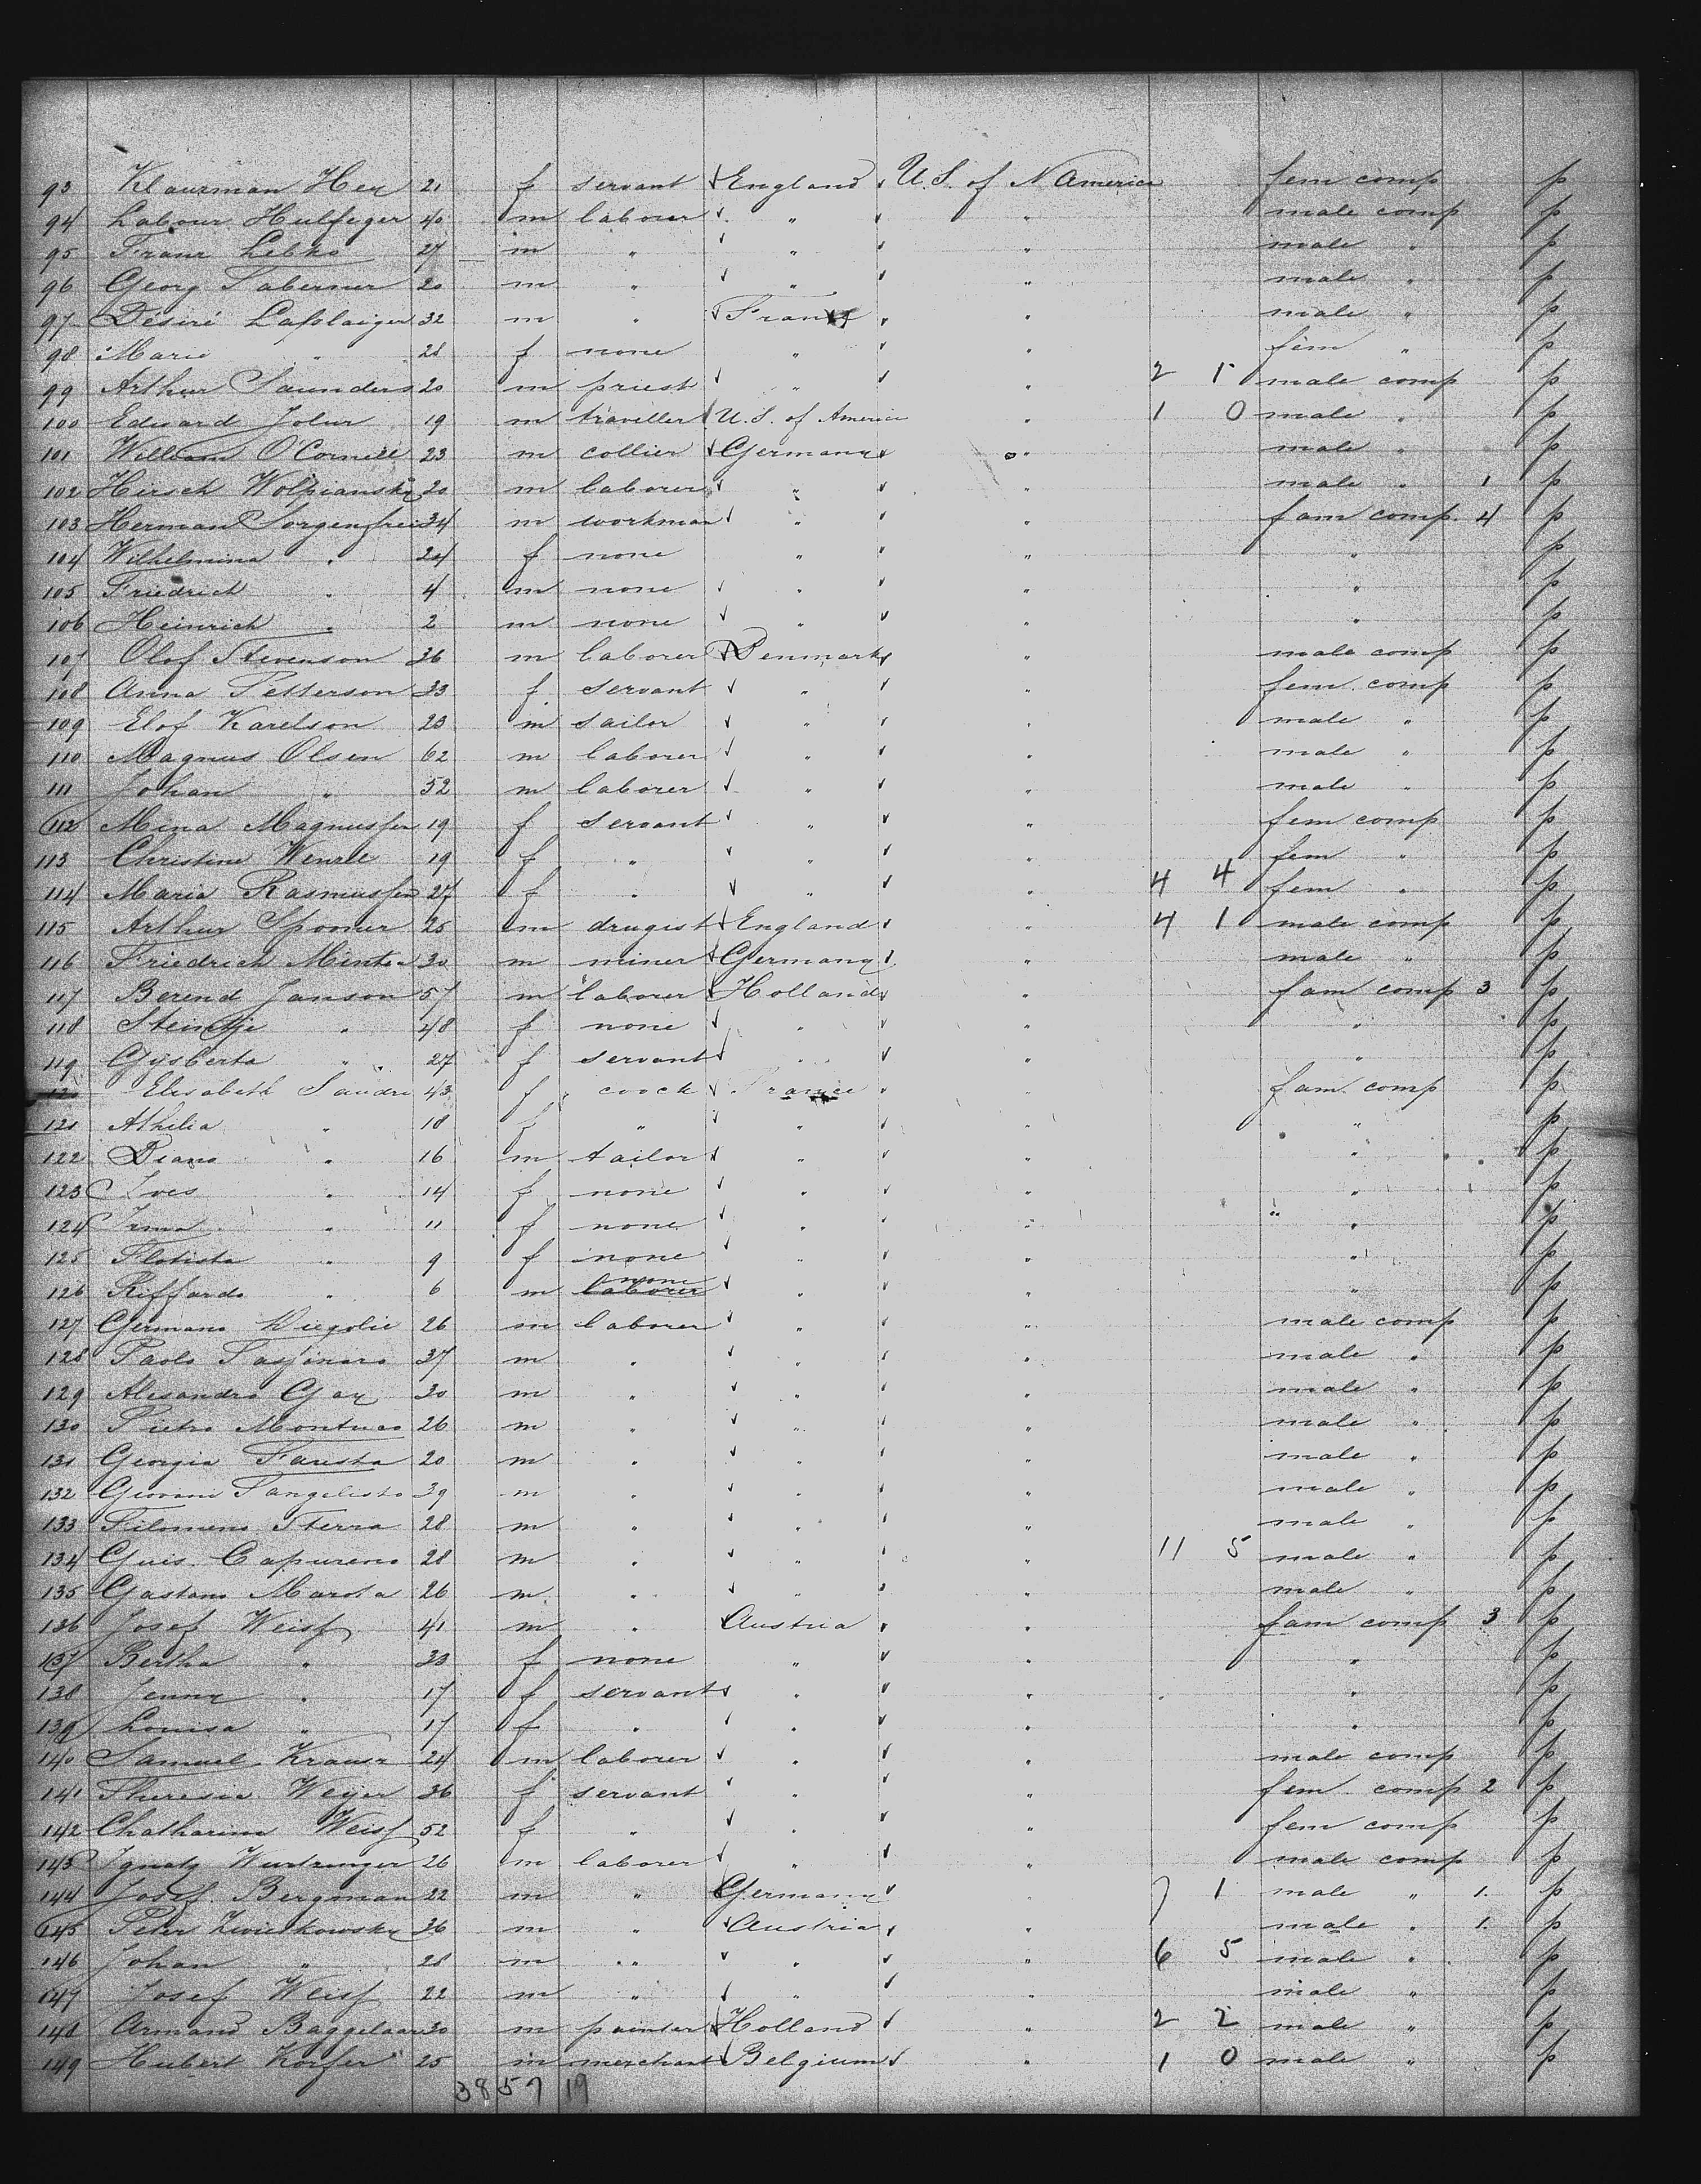 93 Klaurman Hen 21 f servant England U.S. of N America fem comp p
94 Labour Hulfeger 40 m laborer " " male comp p
95 Franz Lebko 27 m " " " male " p
96 Georg Taberner 20 m " " " male " p
97 Désiré Laplaiger 32 m " France " male " p
98 Marie " 28 f none " " fem " p
99 Arthur Saunders 20 m priest " " 2 1 male comp p
100 Edward Johur 19 m traveller U.S. of America " 1 0 male " p
101 William O'Corneill 23 m collier Germany " male " p
102 Hirsch Wolpiansky 20 m laborer " " male " 1 p
103 Herman Sorgenfrei 34 m workman " " fam comp. 4 p
104 Wilhelmina " 24 f none " " " p
105 Friedrich " 4 m none " " " p
106 Heinrich " 2 m none " " " p
107 Olof Stevenson 36 m laborer Denmark " male comp p
108 Anna Petterson 33 f servant " " fem. comp p
109 Elof Karelson 23 m sailor " " male " p
110 Magnus Olsen 62 m laborer " " male " p
111 Johan " 52 m laborer " " male " p
112 Mina Magnussen 19 f servant " " fem comp p
113 Christine Wenzel 19 f " " " fem " p
114 Maria Rasmussen 27 f " " " 4 4 fem " p
115 Arthur Spooner 25 m drugist England " 4 1 male comp p
116 Friedrich Minten 30 m miner Germany " male " p
117 Berend Janson 57 m laborer Holland " fam comp 3 p
118 Steintje " 48 f none " " " p
119 Gijsberta " 27 f servant " " " p
120 Elisabeth Saudre 43 f coock France " fam. comp p
121 Athilia " 18 f " " " " p
122 Diano " 16 m tailor " " " p
123 Ives " 14 f none " " " p
124 Irma " 11 f none " " " p
125 Flotista " 9 f none " " " p
126 Riffardo " 6 m laborer none " " " p
127 Germano 26 m laborer " " male comp p
128 Paolo 37 m " " " male " p
129 Alesandro Gay 30 m " " " male " p
130 Pietro Montuco 26 m " " " male " p
131 Georgia Fausta 20 m " " " male " p
132 Giovani Tangelisto 39 m " " " male " p
133 Filomeno Sterra 28 m " " " male " p
134 Guis. Capureno 28 m " " " 11 5 male " p
135 Gastano Marota 26 m " " " male " p
136 Josef Weiss 41 m " Austria " fam comp 3 p
137 Bertha " 33 f none " " " p
138 Jenny " 17 f servant " " " p
139 Louisa " 17 f " " " " p
140 Samuel Krausz 24 m laborer " " male comp p
141 Theresia Weijer 36 f servant " " fem comp 2 p
142 Chatharina Weiss 52 f " " " fem comp p
143 Ignatz Wurtzunger 26 m laborer " " male comp p
144 Josef Bergman 22 m " Germany " 7 1 male " 1. p
145 Peter Zwietkowsky 36 m " Austria " male " 1. p
146 Johan " 28 m " " " 6 5 male " p
147 Josef Weiss 22 m " " " male " p
148 Armand Baggelaar 30 m painter Holland " 2 2 male " p
149 Hubert Korfer 25 m merchant Belgium " 1 0 male " p
38 57 19